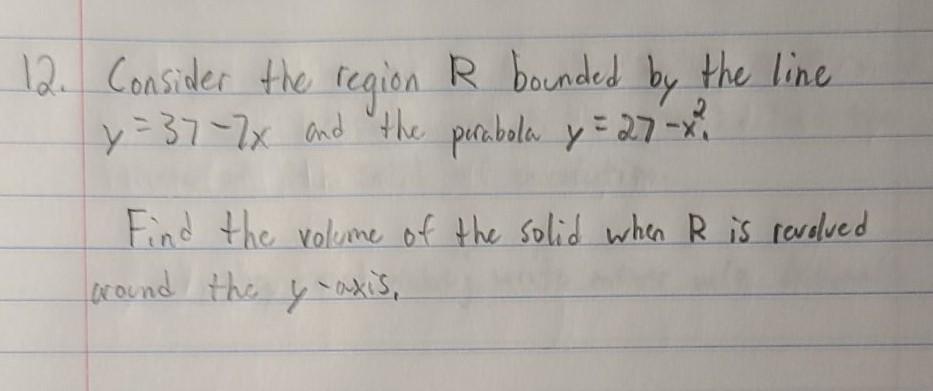 12. Consider the region R bounded by the line
y = 37 - 7x and the parabola y = 27 - x².
Find the volume of the solid when R is revolved
around the y-axis.